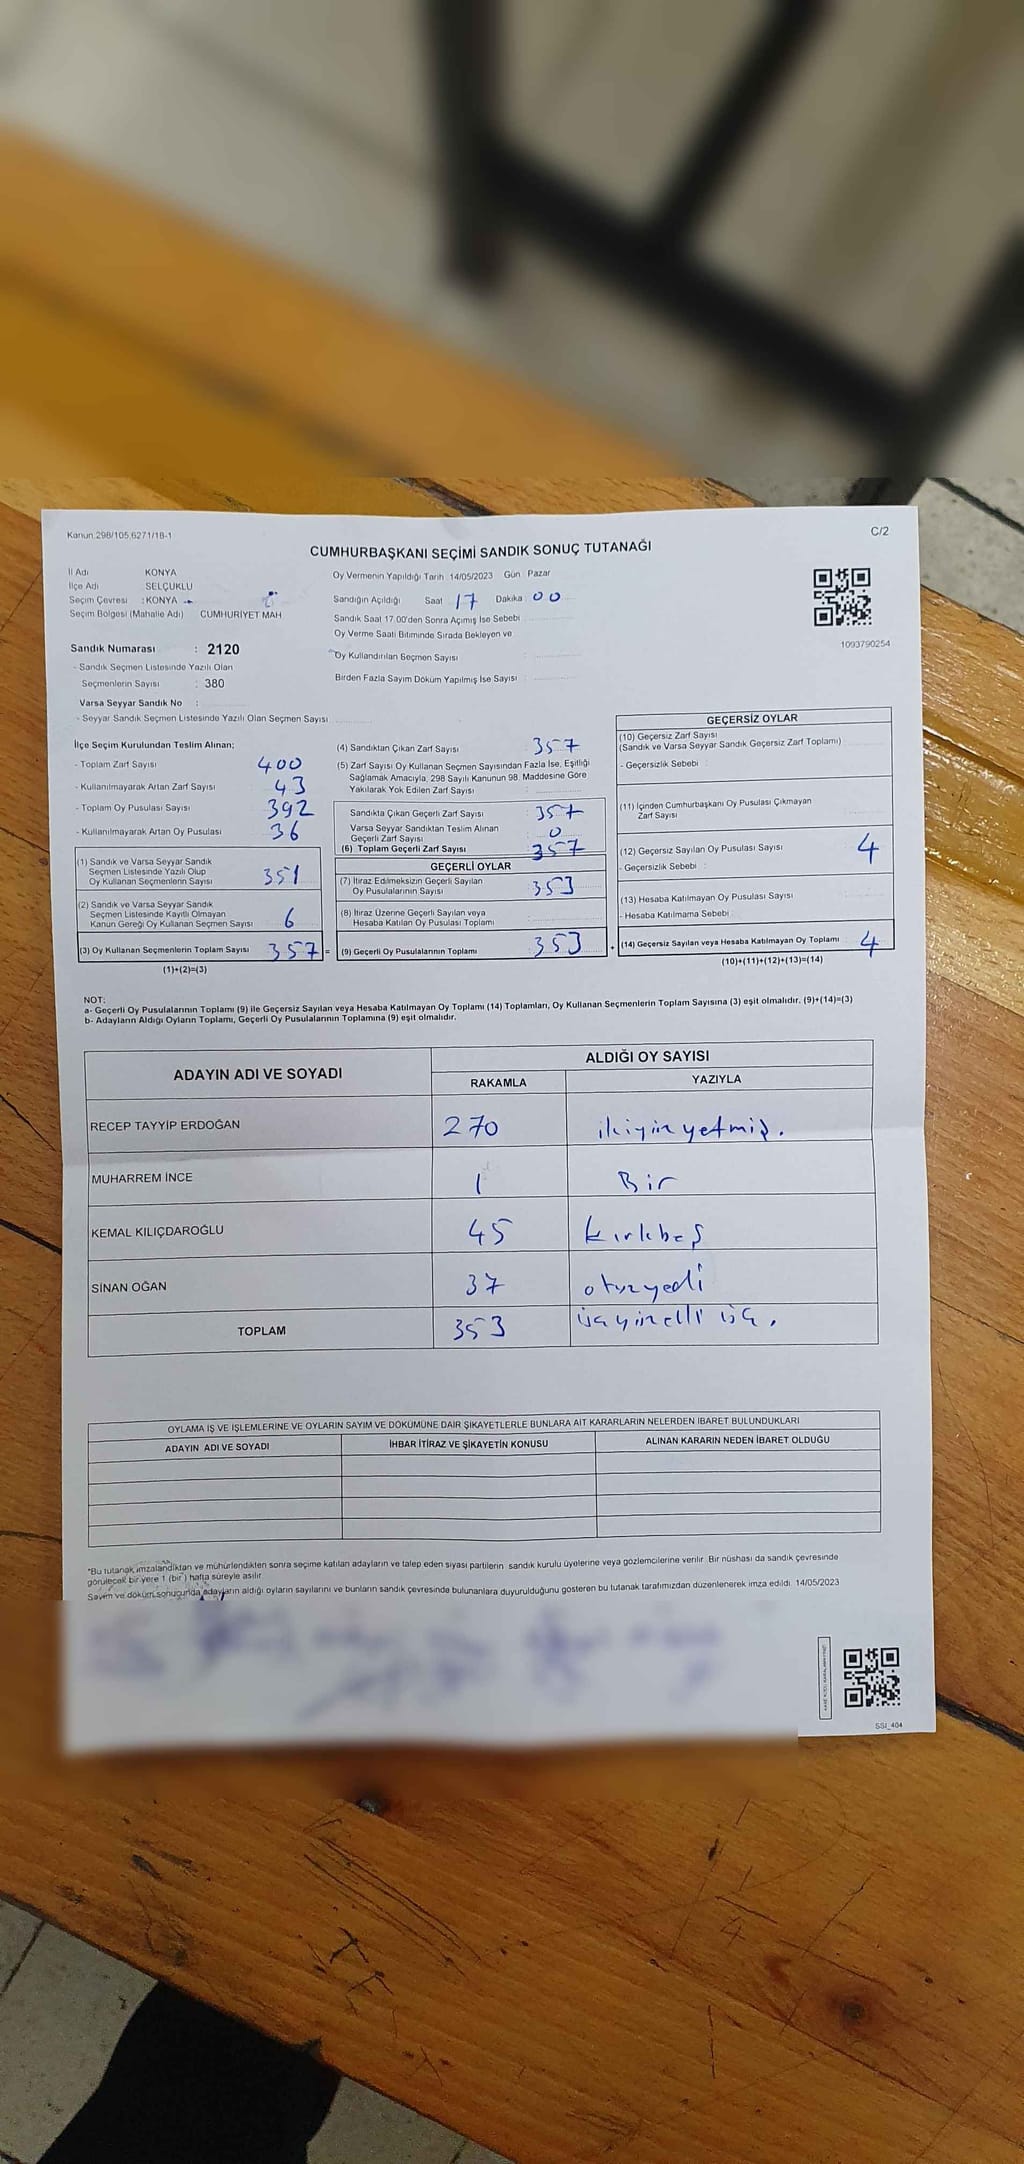 Kanun.298/105,6271/18-1
C/2
CUMHURBAŞKANI SEÇİMİ SANDIK SONUÇ TUTANAĞI
İl Adı KONYA
İlçe Adı SELÇUKLU
Seçim Çevresi : KONYA
Seçim Bölgesi (Mahalle Adı) CUMHURİYET MAH
Sandık Numarası : 2120
- Sandık Seçmen Listesinde Yazılı Olan
Seçmenlerin Sayısı : 380
Varsa Seyyar Sandık No :
- Seyyar Sandık Seçmen Listesinde Yazılı Olan Seçmen Sayısı
Oy Vermenin Yapıldığı Tarih 14/05/2023 Gün Pazar
Sandığın Açıldığı Saat 17 Dakika 00
Sandık Saat 17.00'den Sonra Açımış İse Sebebi
Oy Verme Saati Bitiminde Sırada Bekleyen ve
Oy Kullandırılan Seçmen Sayısı :
Birden Fazla Sayım Döküm Yapılmış İse Sayısı :
1093790254
İlçe Seçim Kurulundan Teslim Alınan;
- Toplam Zarf Sayısı 400
- Kullanılmayarak Artan Zarf Sayısı 43
- Toplam Oy Pusulası Sayısı 392
- Kullanılmayarak Artan Oy Pusulası 36
(1) Sandık ve Varsa Seyyar Sandık
Seçmen Listesinde Yazılı Olup
Oy Kullanan Seçmenlerin Sayısı 351
(2) Sandık ve Varsa Seyyar Sandık
Seçmen Listesinde Kayıtlı Olmayan
Kanun Gereği Oy Kullanan Seçmen Sayısı 6
(3) Oy Kullanan Seçmenlerin Toplam Sayısı 357 =
(1)+(2)=(3)
(4) Sandıktan Çıkan Zarf Sayısı : 357
(5) Zarf Sayısı Oy Kullanan Seçmen Sayısından Fazla İse, Eşitliği
Sağlamak Amacıyla, 298 Sayılı Kanunun 98. Maddesine Göre
Yakılarak Yok Edilen Zarf Sayısı :
Sandıkta Çıkan Geçerli Zarf Sayısı : 357
Varsa Seyyar Sandıktan Teslim Alınan
Geçerli Zarf Sayısı : 0
(6) Toplam Geçerli Zarf Sayısı : 357
GEÇERLİ OYLAR
(7) İtiraz Edilmeksizin Geçerli Sayılan
Oy Pusulalarının Sayısı : 353
(8) İtiraz Üzerine Geçerli Sayılan veya
Hesaba Katılan Oy Pusulası Toplamı :
(9) Geçerli Oy Pusulalarının Toplamı : 353 +
GEÇERSİZ OYLAR
(10) Geçersiz Zarf Sayısı
(Sandık ve Varsa Seyyar Sandık Geçersiz Zarf Toplamı)
- Geçersizlik Sebebi :
(11) İçinden Cumhurbaşkanı Oy Pusulası Çıkmayan
Zarf Sayısı
(12) Geçersiz Sayılan Oy Pusulası Sayısı 4
- Geçersizlik Sebebi :
(13) Hesaba Katılmayan Oy Pusulası Sayısı
- Hesaba Katılmama Sebebi :
(14) Geçersiz Sayılan veya Hesaba Katılmayan Oy Toplamı 4
(10)+(11)+(12)+(13)=(14)
NOT:
a- Geçerli Oy Pusulalarının Toplamı (9) ile Geçersiz Sayılan veya Hesaba Katılmayan Oy Toplamı (14) Toplamları, Oy Kullanan Seçmenlerin Toplam Sayısına (3) eşit olmalıdır. (9)+(14)=(3)
b- Adayların Aldığı Oyların Toplamı, Geçerli Oy Pusulalarının Toplamına (9) eşit olmalıdır.
ADAYIN ADI VE SOYADI
ALDIĞI OY SAYISI
RAKAMLA YAZIYLA
RECEP TAYYİP ERDOĞAN 270 ikiyüzyetmiş.
MUHARREM İNCE 1 Bir
KEMAL KILIÇDAROĞLU 45 kırkbeş
SİNAN OĞAN 37 otuzyedi
TOPLAM 353 üçyüzelli üç.
OYLAMA İŞ VE İŞLEMLERİNE VE OYLARIN SAYIM VE DÖKÜMÜNE DAİR ŞİKAYETLERLE BUNLARA AİT KARARLARIN NELERDEN İBARET BULUNDUKLARI
ADAYIN ADI VE SOYADI İHBAR İTİRAZ VE ŞİKAYETİN KONUSU ALINAN KARARIN NEDEN İBARET OLDUĞU
*Bu tutanak imzalandıktan ve mühürlendikten sonra seçime katılan adayların ve talep eden siyasi partilerin sandık kurulu üyelerine veya gözlemcilerine verilir. Bir nüshası da sandık çevresinde
görülecek bir yere 1 (bir) hafta süreyle asılır.
Sayım ve döküm sonucunda adayların aldığı oyların sayılarını ve bunların sandık çevresinde bulunanlara duyurulduğunu gösteren bu tutanak tarafımızdan düzenlenerek imza edildi. 14/05/2023
SSI_404